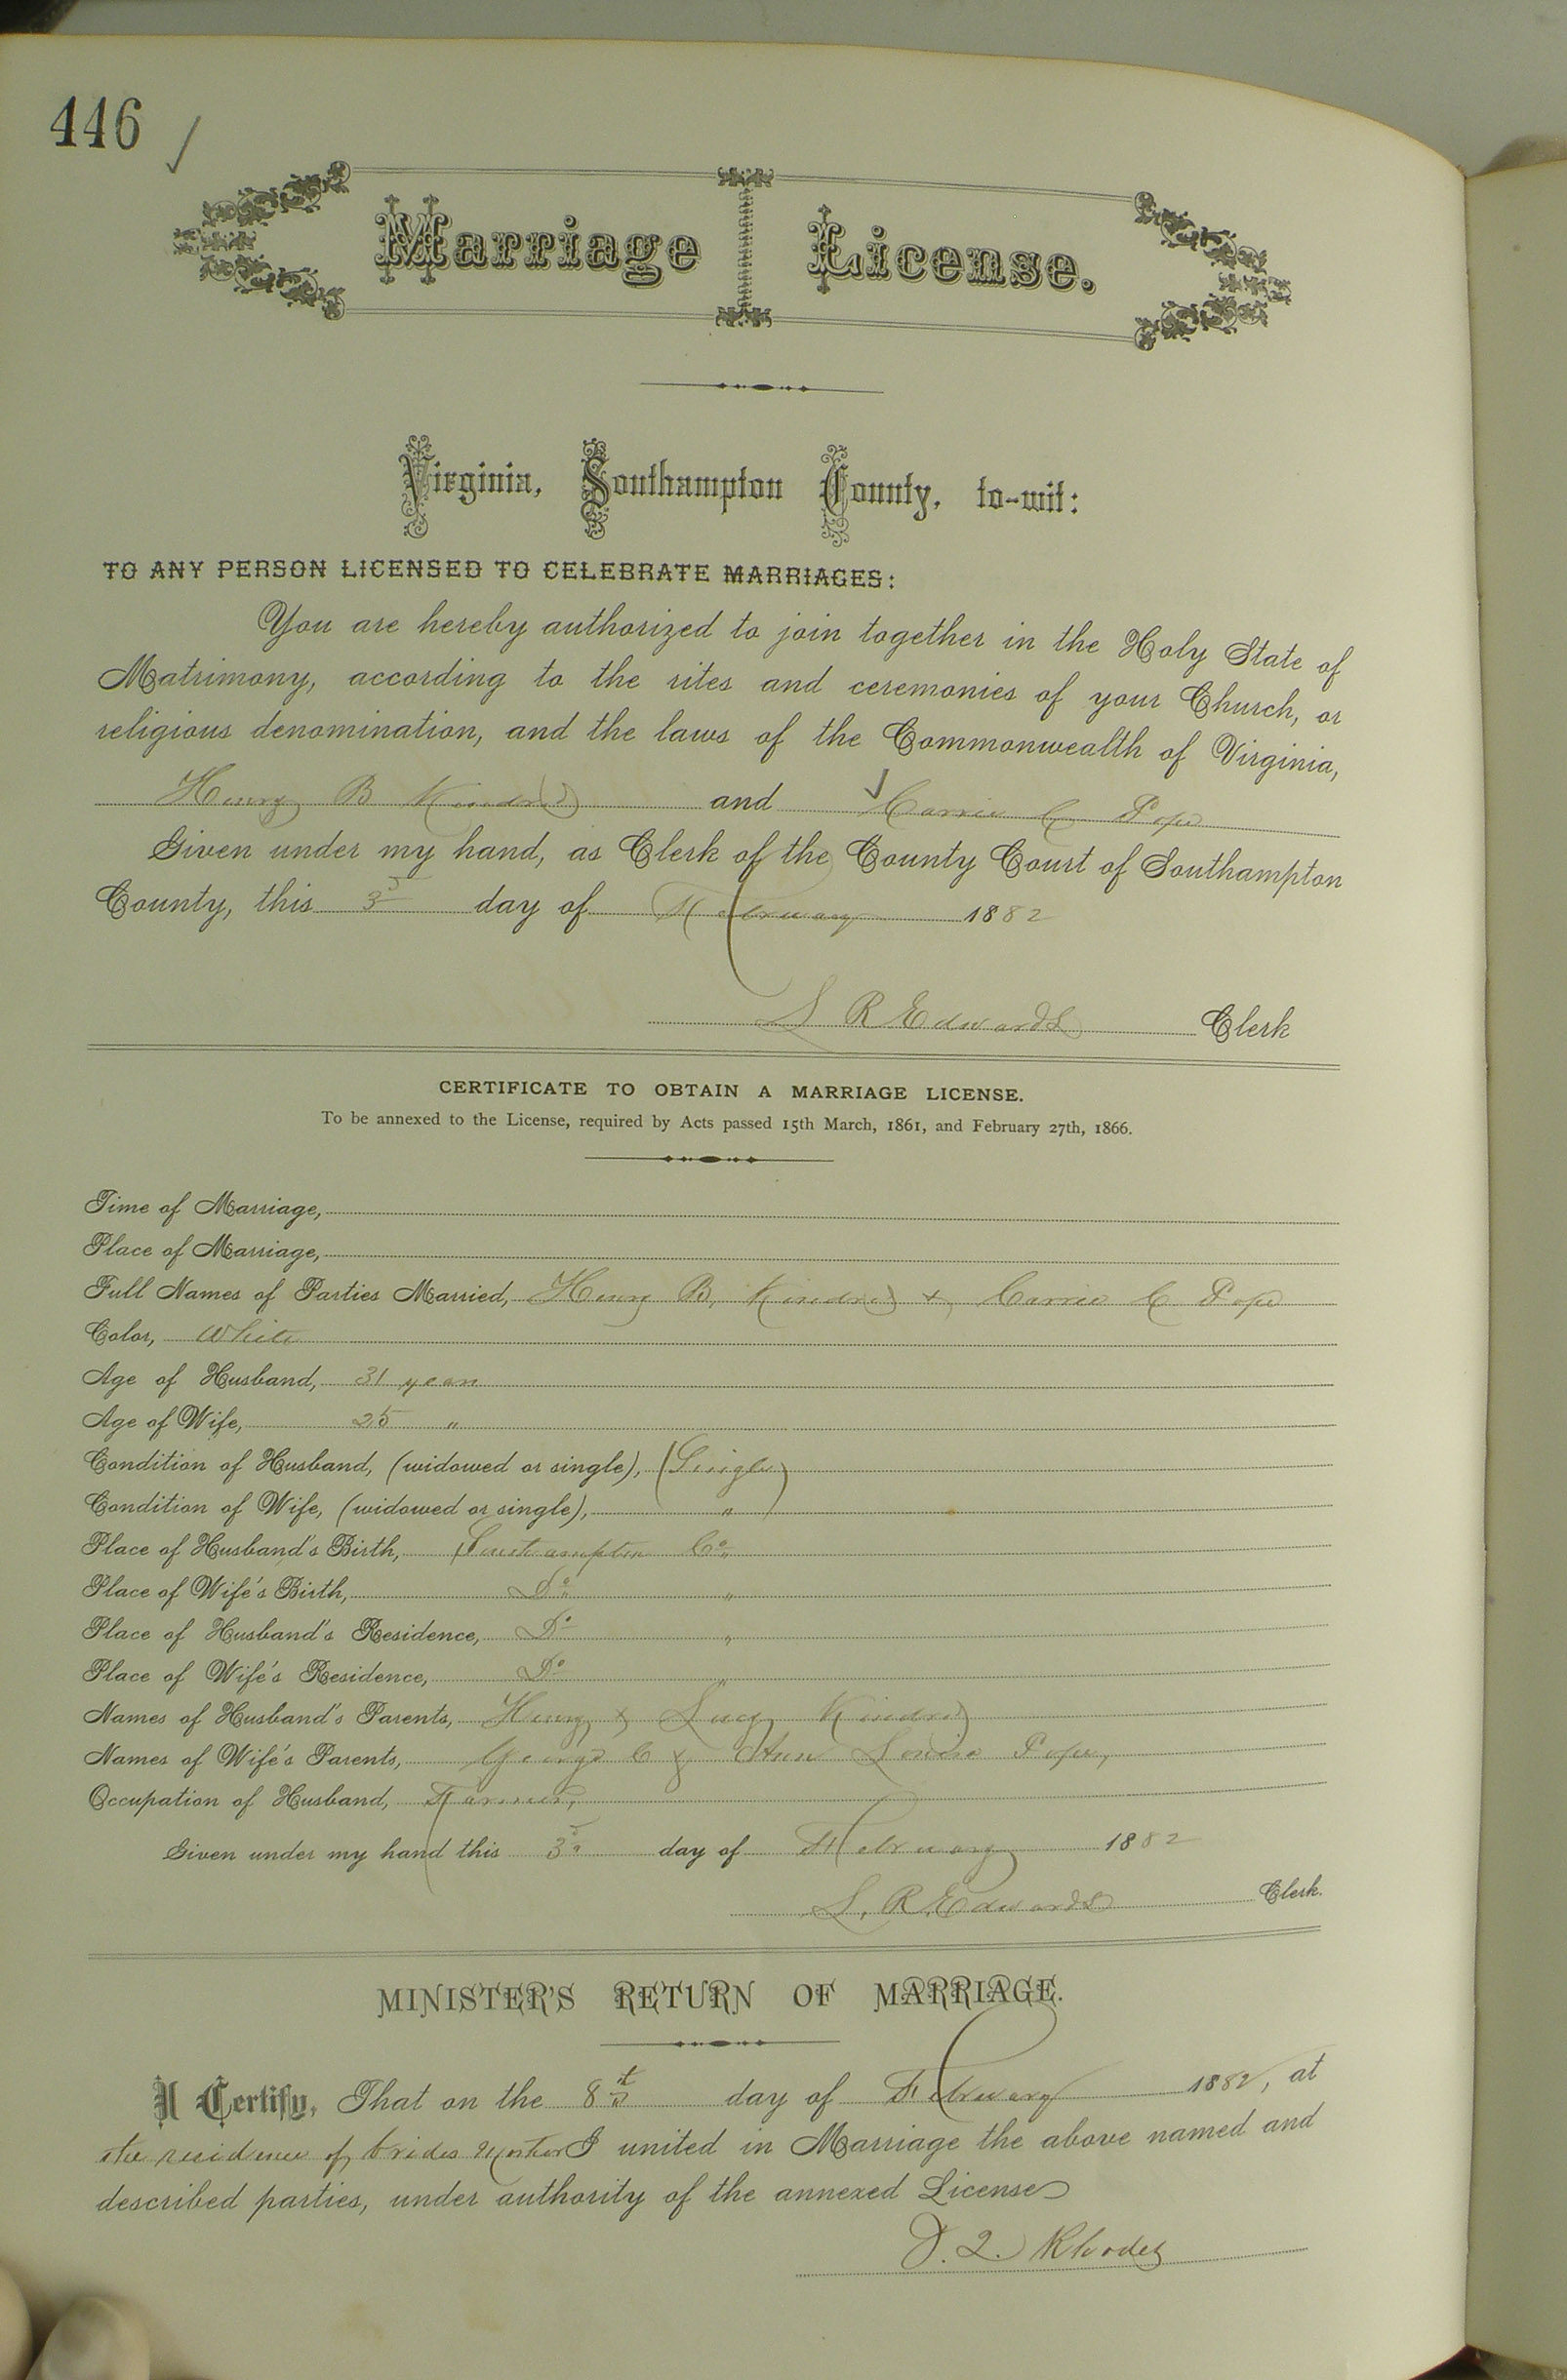 446
Marriage License.
Virginia, Southampton County, to-wit:
TO ANY PERSON LICENSED TO CELEBRATE MARRIAGES:
You are hereby authorized to join together in the Holy State of
Matrimony, according to the rites and ceremonies of your Church, or
religious denomination, and the laws of the Commonwealth of Virginia,
Henry B Kindred and Carrie C Pope
Given under my hand, as Clerk of the County Court of Southampton
County, this 3d day of February 1882
L R Edwards Clerk
CERTIFICATE TO OBTAIN A MARRIAGE LICENSE.
To be annexed to the License, required by Acts passed 15th March, 1861, and February 27th, 1866.
Time of Marriage,
Place of Marriage,
Full Names of Parties Married, Henry B, Kindred & Carrie C Pope
Color, White
Age of Husband, 31 years
Age of Wife, 25 "
Condition of Husband, (widowed or single), (Single)
Condition of Wife, (widowed or single), "
Place of Husband's Birth, Southampton Co
Place of Wife's Birth, Do "
Place of Husband's Residence, Do "
Place of Wife's Residence, Do "
Names of Husband's Parents, Henry & Lucy Kindred
Names of Wife's Parents, George C & Ann Pope,
Occupation of Husband, Farmer,
Given under my hand this 3d day of February 1882
L, R, Edwards Clerk.
MINISTER'S RETURN OF MARRIAGE.
I Certify, That on the 8th day of February 1882, at
the residence of brides Mother I united in Marriage the above named and
described parties, under authority of the annexed License
J. 2. Rhodes